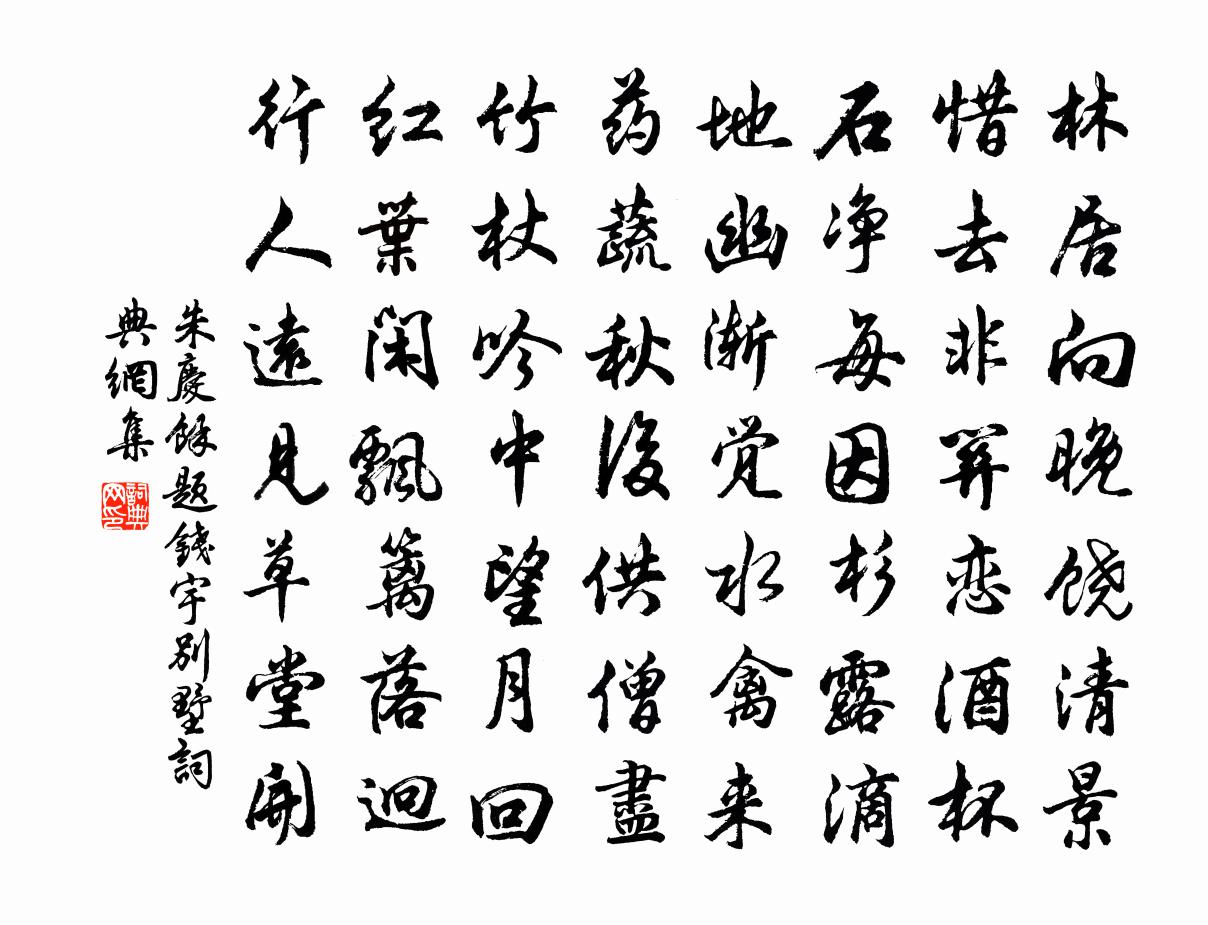 林居向晚饶清景
惜去非关恋酒杯
石净每因杉露滴
地幽渐觉水禽来
药蔬秋後供僧盡
竹杖吟中望月回
红葉闲飘篱落迥
行人遠見草堂開
朱慶馀题錢宇别墅詞
典網集
詞典
网印